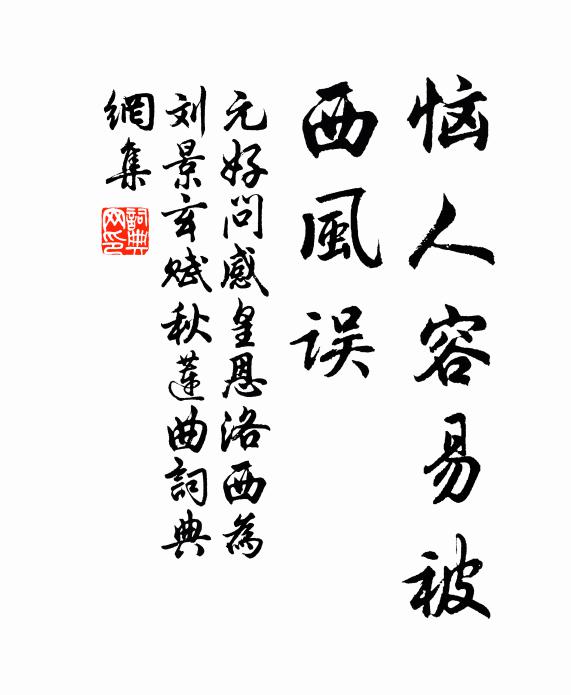 恼人容易被
西風误
元好问感皇恩洛西為
刘景玄赋秋莲曲詞典
網集
詞典網印